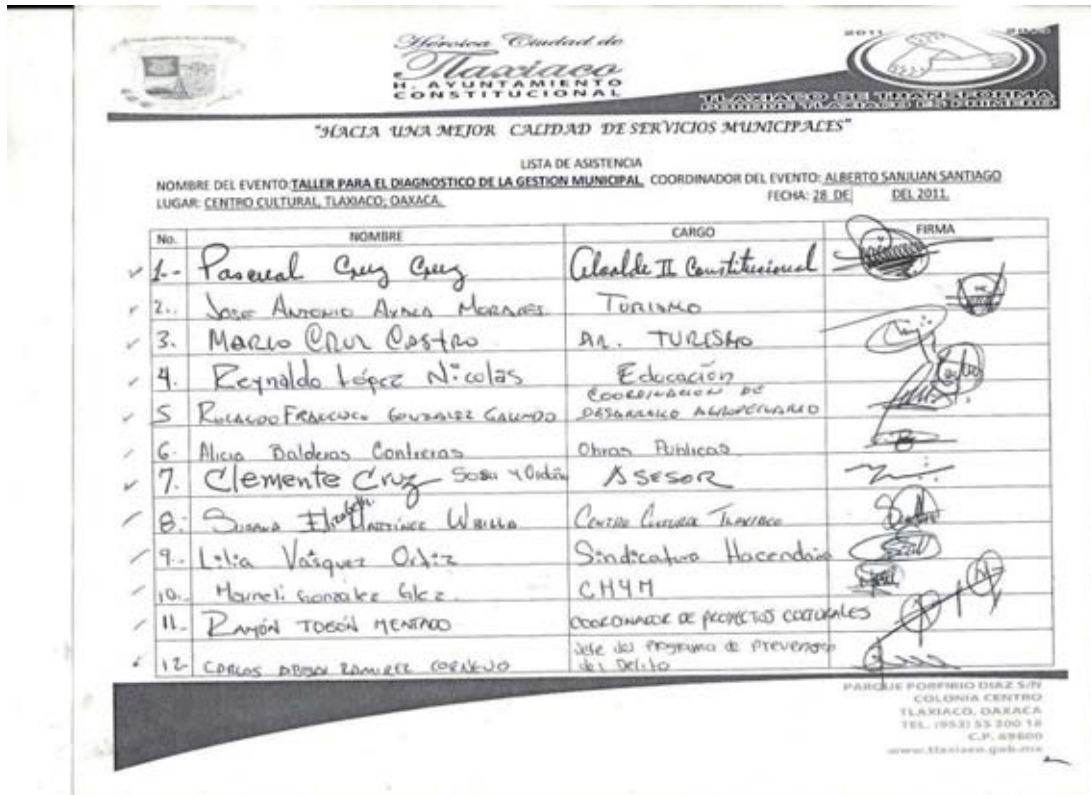 Heroica Ciudad de
Tlaxiaco
H. AYUNTAMIENTO
CONSTITUCIONAL
2011
TLAXIACO SE TRANSFORMA
PORQUE TLAXIACO ES PRIMERO
"HACIA UNA MEJOR CALIDAD DE SERVICIOS MUNICIPALES"
LISTA DE ASISTENCIA
NOMBRE DEL EVENTO: TALLER PARA EL DIAGNOSTICO DE LA GESTION MUNICIPAL COORDINADOR DEL EVENTO: ALBERTO SANJUAN SANTIAGO
LUGAR: CENTRO CULTURAL, TLAXIACO; OAXACA. FECHA: 28 DE DEL 2011.
No. NOMBRE CARGO FIRMA
1.- Pascual Cruz Cruz Alcalde II Constitucional
2.. Jose Antonio Ayala Morales. Turismo
3. Mario Cruz Castro TURISMO
4. Reynaldo López Nicolas Educación
5 Francisco Gonzalez Galindo COORDINACION DE DESARROLLO AGROPECUARIO
6. Alicia Balderas Contreras Obras Publicas
7. Clemente Cruz Sosa y ASESOR
8. Susana Elizabeth Martínez Centro Cultural Tlaxiaco
9.- Lilia Vásquez Ortiz Sindicatura Hacendaria
10.- Marneli Gonzalez Glez. CMYM
11.- RAMÓN COORDINADOR DE PROYECTOS CULTURALES
12- CARLOS RAMIREZ CORNEJO Jefe del Programa de Prevencion del Delito
PARQUE PORFIRIO DIAZ S/N
COLONIA CENTRO
TLAXIACO, OAXACA
TEL. (953) 55 200 18
C.P. 69800
www.tlaxiaco.gob.mx